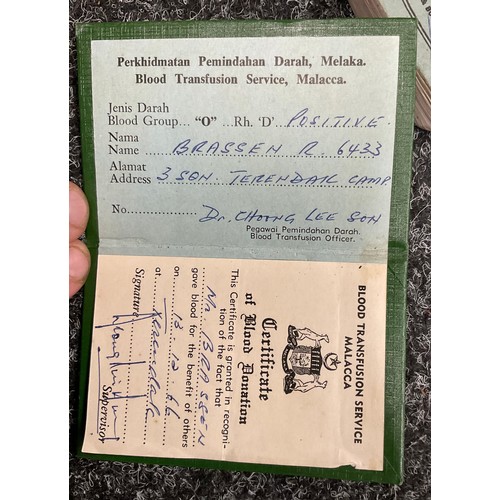 Perkhidmatan Pemindahan Darah, Melaka.
Blood Transfusion Service, Malacca.
Jenis Darah
Blood Group... "O" ...Rh. 'D' POSITIVE
Nama
Name BRASSEN R. 6433
Alamat
Address 3 SQN. TERENDAK CAMP
No. Dr. CHOONG LEE SON
Pegawai Pemindahan Darah.
Blood Transfusion Officer.
BLOOD TRANSFUSION SERVICE
MALACCA
Certificate
of Blood Donation
This Certificate is granted in recogni-
tion of the fact that
Mr BRASSEN
gave blood for the benefit of others
on 13.12.66
at Terendak
Signature
Supervisor